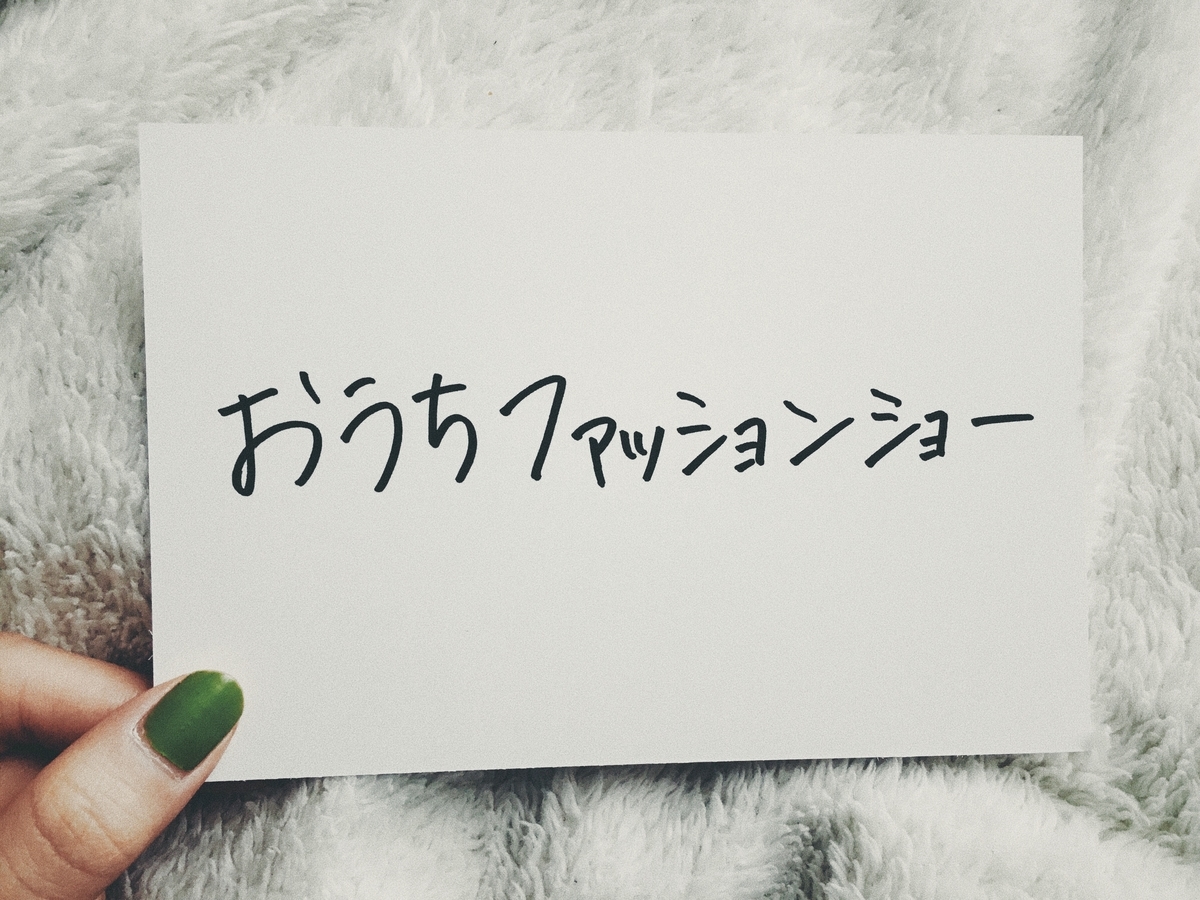 おうちファッションショー